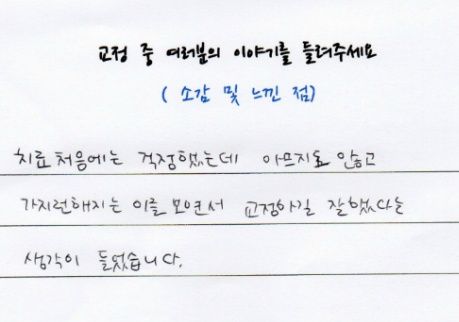 교정 중 여러분의 이야기를 들려주세요
( 소감 및 느낀 점)
치료 처음에는 걱정했는데 아프지도 않고
가지런해지는 이를 보면서 교정하길 잘했다는
생각이 들었습니다.